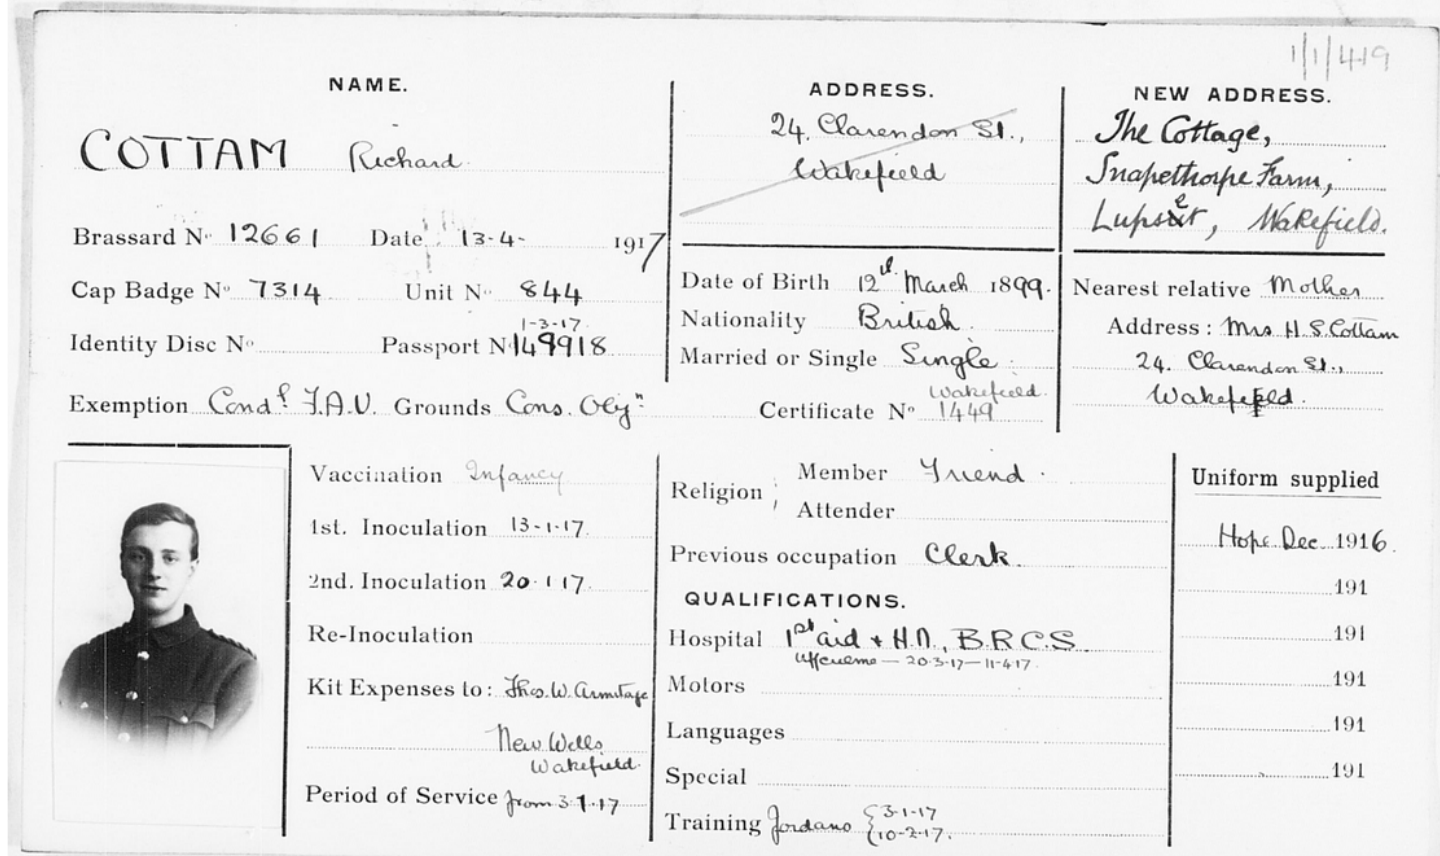 1/1/419
NAME.
COTTAM Richard
Brassard No. 12661 Date 13-4- 1917
Cap Badge No 7314 Unit No. 844
1-3-17.
Identity Disc No. Passport No 149918
Exemption Condl F.A.U. Grounds Cons. Objn
ADDRESS.
24, Clarendon St.,
Wakefield
Date of Birth 12th March 1899.
Nationality British.
Married or Single Single.
Wakefield.
Certificate No 1449
NEW ADDRESS.
The Cottage,
Snapethorpe Farm,
Lupset, Wakefield.
Nearest relative Mother
Address: Mrs H. S. Cottam
24. Clarendon St.,
Wakefield.
Vaccination Infancy
1st. Inoculation 13-1-17.
2nd. Inoculation 20.1.17.
Re-Inoculation
Kit Expenses to: Thos. W. Armitage
New Wells
Wakefield.
Period of Service from 3.1.17
Religion Member Friend.
Attender
Previous occupation Clerk.
QUALIFICATIONS.
Hospital 1st aid & H.N., B.R.C.S.
Uffculme — 20.3.17 — 11-4.17.
Motors
Languages
Special
Training Jordans 3-1-17
10-2-17.
Uniform supplied
Hope Dec 1916.
191
191
191
191
191